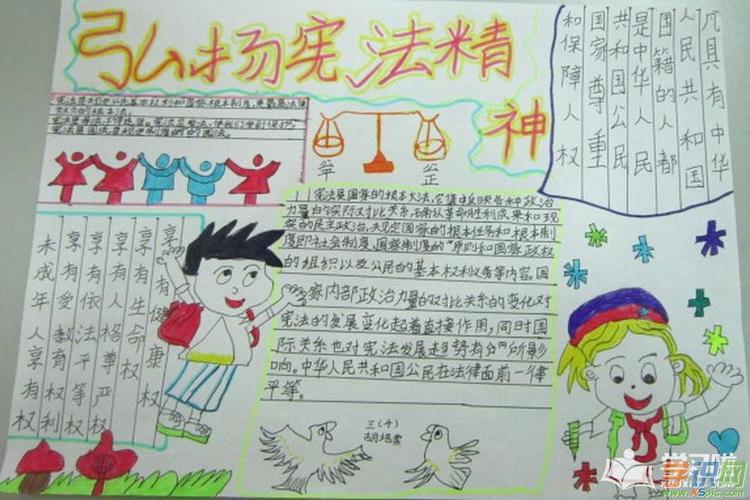 弘扬宪法精
神
凡具有中华
人民共和国
国籍的人都
是中华人民
共和国公民
国家尊重
和保障人权
享有健康权
享有生命权
享有人格尊严权
享有依法平等权
享有受教育权利
未成年人享有权
宪法是国家的根本大法,它集中反映各种政治
力量的实际对比关系,确认革命胜利成果和现
实的民主政治,规定国家的根本任务和根本制
度即社会制度、国家制度的原则和国家政权
的组织以及公民的基本权利义务等内容。国
家内部政治力量的对比关系的变化对
宪法的发展变化起着直接作用,同时国
际关系也对宪法发展趋势有所影
响。中华人民共和国公民在法律面前一律
平等。
三(4)
学习啦
学识网